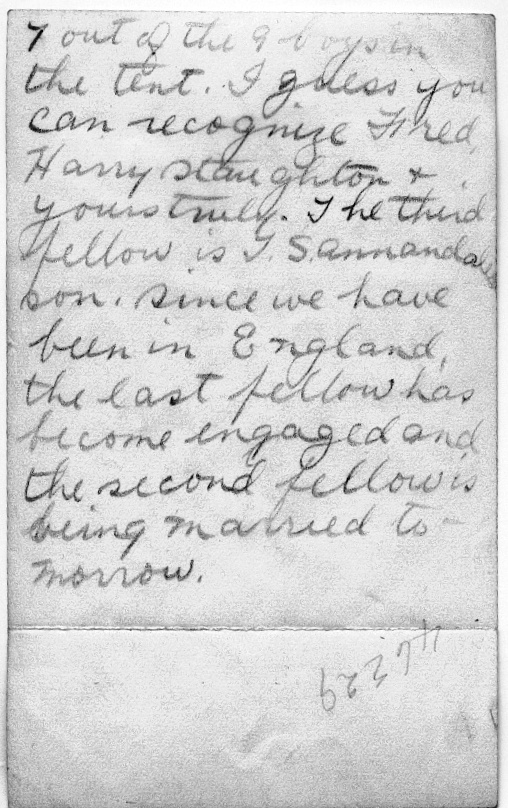 7 out of the 9 boys in
the tent. I guess you
can recognize Fred,
Harry Staughton +
yours truly. The third
fellow is T. S. Annandale's
son. Since we have
been in England,
the last fellow has
become engaged and
the second fellow is
being married to-
morrow.